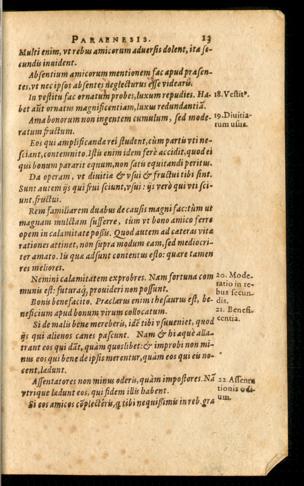 PARAENESIS. 13
Multi enim, vt rebus amicorum aduersis dolent, ita se-
cundis inuident.
Absentium amicorum mentionem fac apud præsen-
tes, vt nec ipsos absentes neglecturus esse videaris.
In vestitu fac ornatum probes, luxum repudies. Ha-
bet aūt ornatus magnificentiam, luxus redundantiā.
18. Vestitꝰ.
Ama bonorum non ingentem cumulum, sed mode-
ratum fructum.
19. Diuitia-
rum usus.
Eos qui amplificanda rei student, cùm partis vti ne-
sciant, contemnito. Istis enim idem ferè accidit, quod ei
qui bonum pararit equum, non satis equitandi peritus.
Da operam, vt diuitiæ & vsui & fructui tibi sint.
Sunt autem ijs qui frui sciunt, vsui: ijs verò qui vti sci-
unt, fructui.
Rem familiarem duabus de causis magni fac: tùm ut
magnam mulctam sufferre, tùm vt bono amico ferre
opem in calamitate possis. Quod autem ad cæteras vitæ
rationes attinet, non supra modum eam, sed mediocri-
ter amato. Iis quæ adsunt contentus esto: quære tamen
res meliores.
Nemini calamitatem exprobres. Nam fortuna com
munis est: futuraq́; prouideri non possunt.
20. Mode-
ratio in re-
bus secun-
dis.
Bonis benefacito. Præclarus enim thesaurus est, be-
neficium apud bonum virum collocatum.
21. Benefi-
centia.
Si de malis bene mereberis, idē tibi vsuueniet, quod
ijs qui alienos canes pascunt. Nam & hi æquè alla-
trant eos qui dāt, quàm quoslibet: & improbi non mi-
nus eos qui bene de ipsis merentur, quàm eos qui eis no-
cent, lædunt.
Assentatores non minus oderis, quàm impostores. Nā
vtrique lædunt eos, qui fidem illis habent.
22 Assenta
tionis odi-
um.
Si eos amicos cōplecteris, q̃ tibi nequissimis in reb. gra